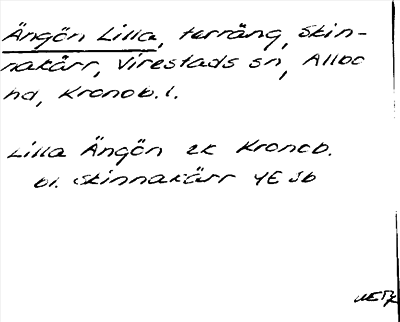 Ängön Lilla, terräng, Skin-
nakärr, Virestads sn, Allbo
hd, Kronob. l.
Lilla Ängön ek Kronob.
bl. Skinnakärr 4E 5b